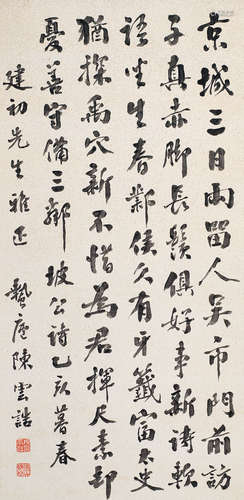 京城三日雨留人吴市門前訪
子真赤脚長鬚俱好事新詩軟
語坐生春鄴侯久有牙籤富太史
猶探禹穴新不惜為君揮尺素却
憂善守備三鄰 坡公詩乙亥暮春
建初先生雅正 蟄廬陳雲誥